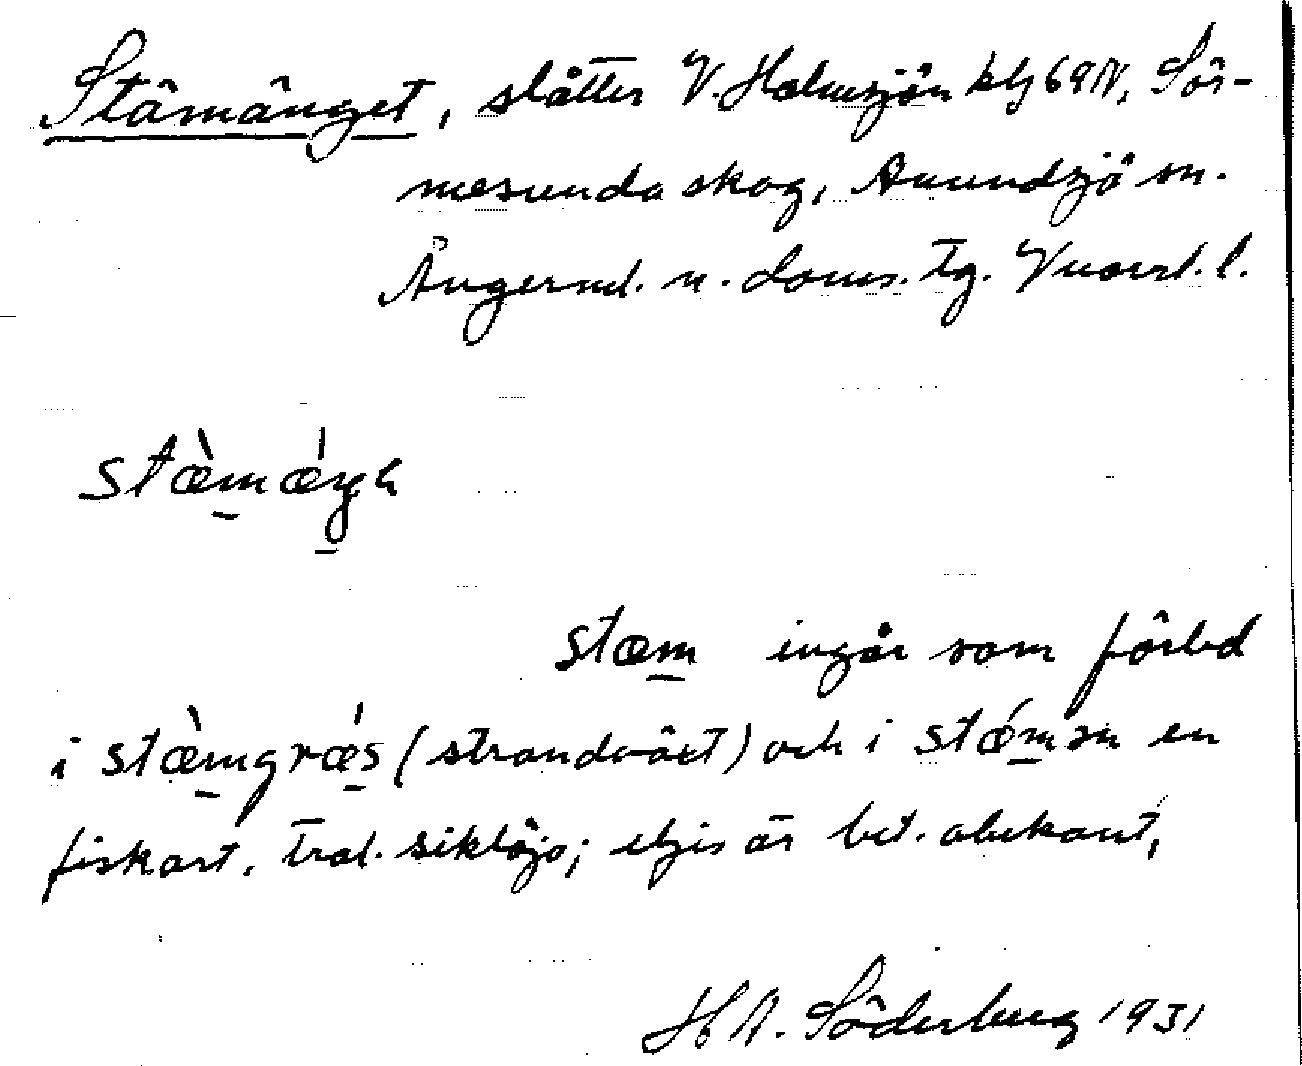 Stämänget, slåtter V. Holmsjön klg 69 N, Sör-
mesunda skog, Anundsjö sn.
Ångerml. n. doms. tg.
stæ̀mǽŋh
stæm ingår som förled
i stæ̀mgrǽs (strandväxt) och i stǽmsn en
fiskart, trol. siklöja; eljes är bet. obekant,
H A. Söderberg 1931